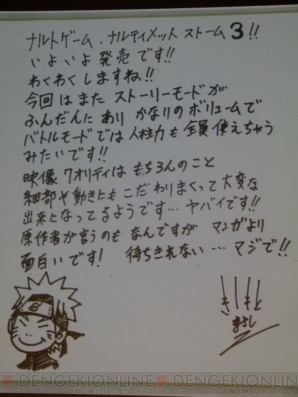 ナルトゲーム、ナルティメットストーム3!!
いよいよ発売です!!
わくわくしますね!!
今回はまたストーリーモードが
ふんだんにありかなりのボリュームで
バトルモードでは人柱力も全員使えちゃう
みたいです!!
映像クオリティはもちろんのこと
細部や動きにもこだわりまくって大変な
出来となってるようです…ヤバイです!!
原作者が言うのもなんですがマンガより
面白いです! 待ちきれない…マジで!!
きしもと
まさし
DENGEKIONLINE
DENGEKIONLINE